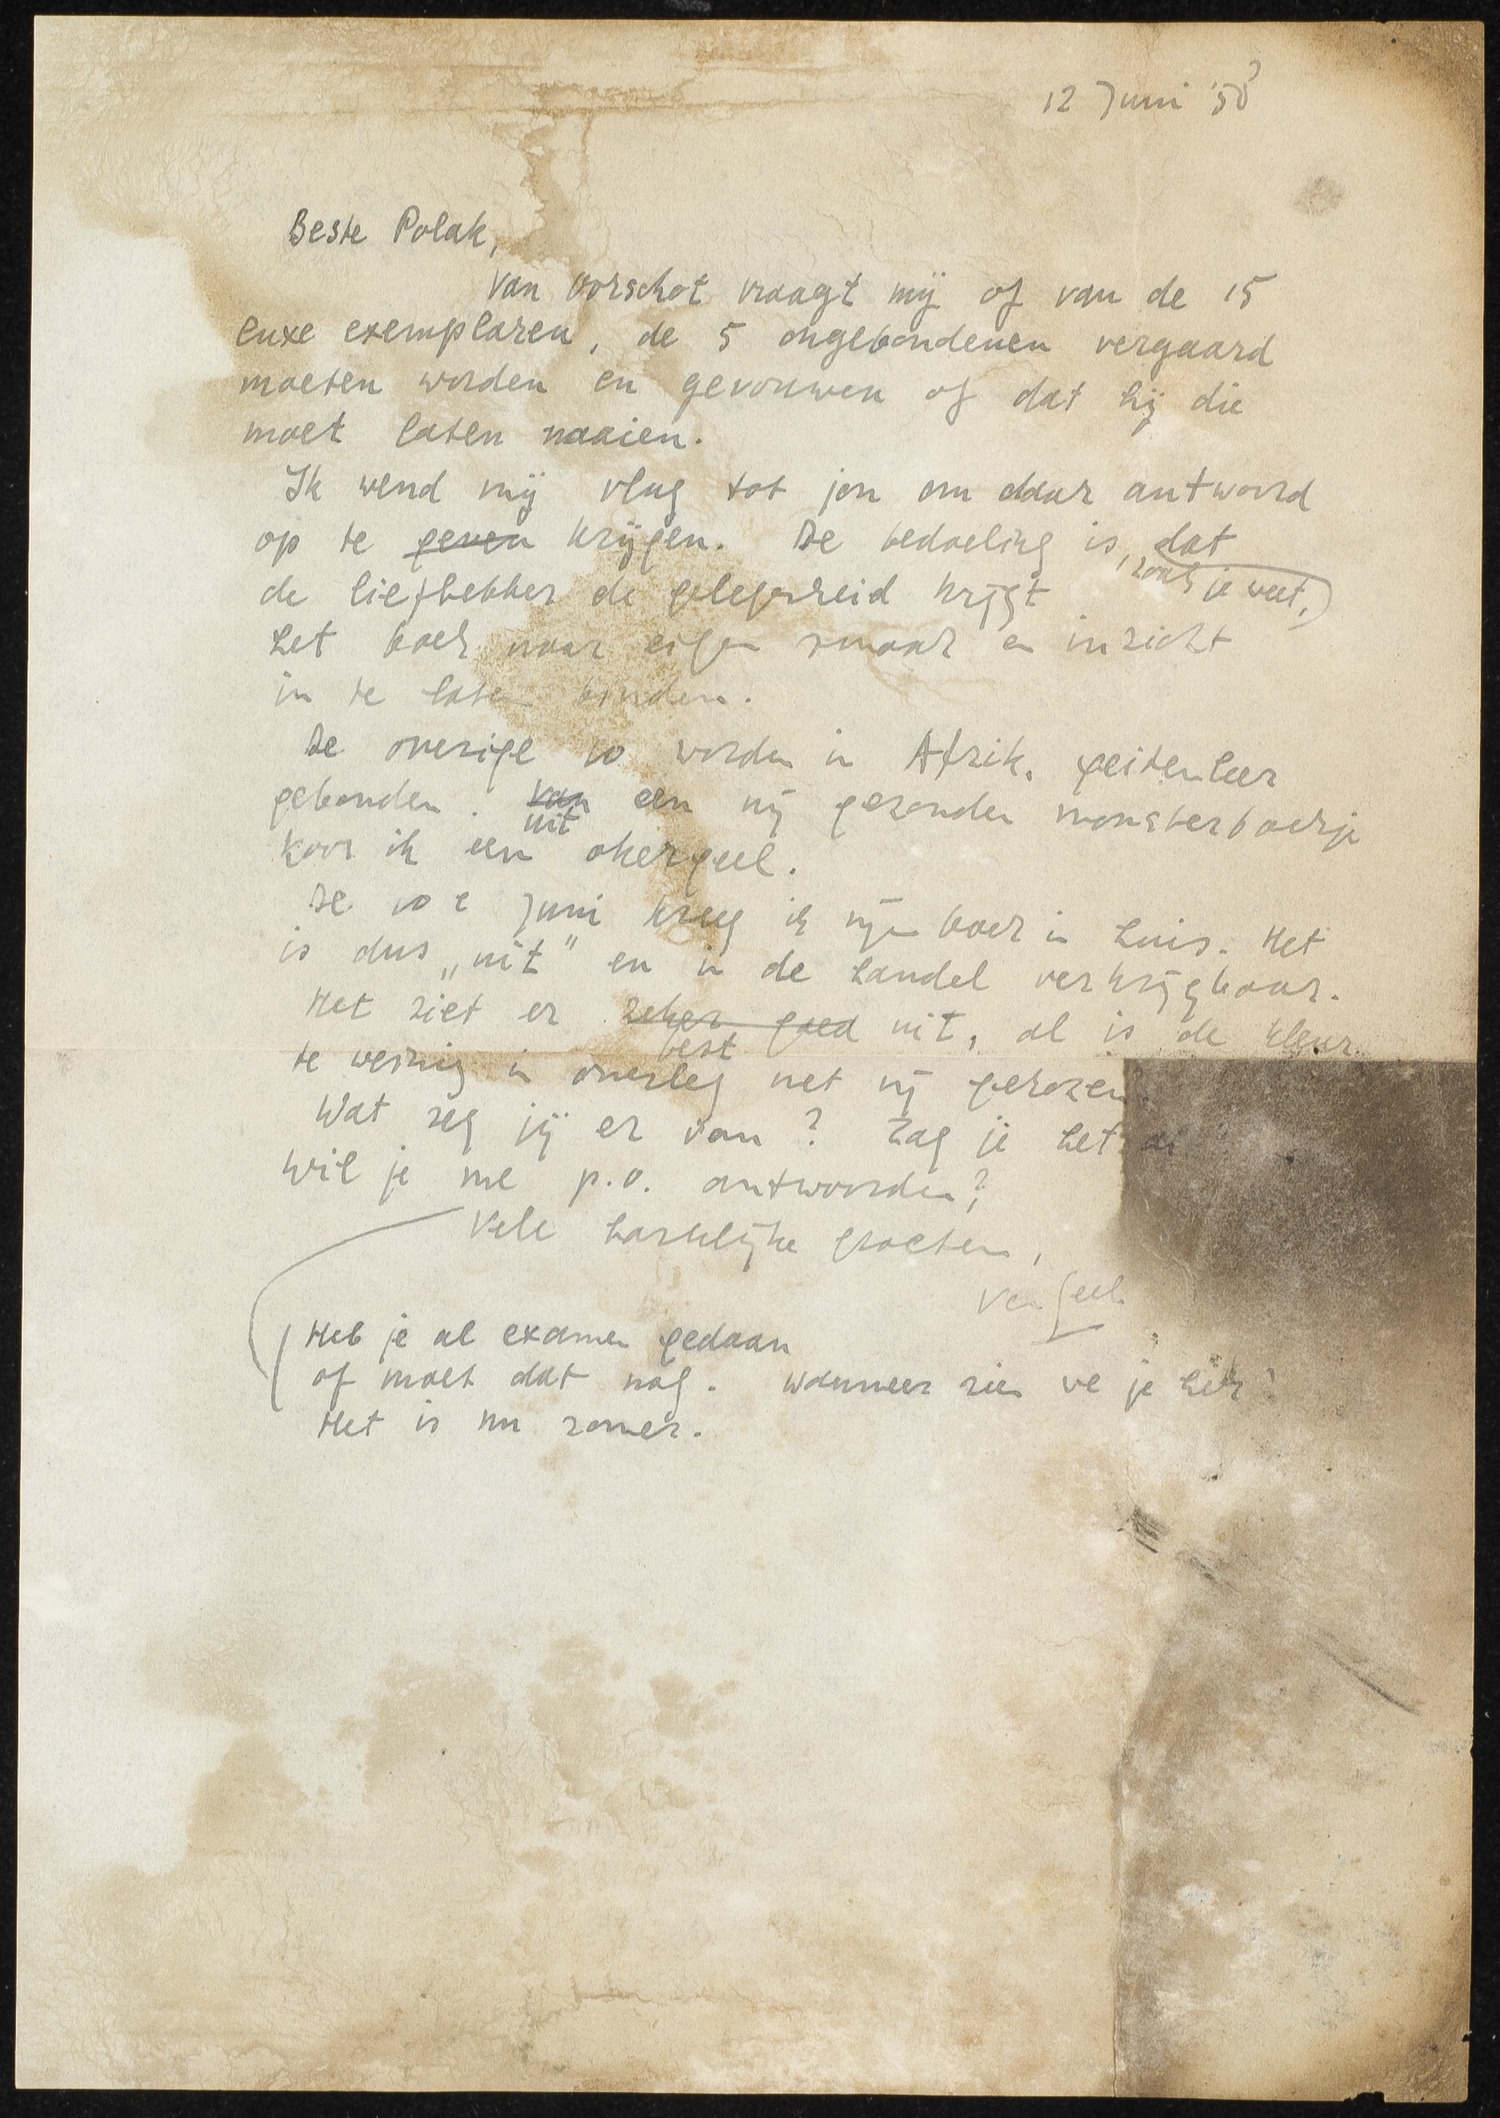 12 Juni '58
Beste Polak,
Van Oorschot vraagt mij of van de 15
luxe exemplaren, de 5 ongebondenen vergaard
moeten worden en gevouwen of dat hij die
moet laten naaien.
Ik wend mij vlug tot jou om daar antwoord
op te geven krijgen. De bedoeling is, dat
zoals je weet,
de liefhebber de gelegenheid krijgt
het boek naar eigen smaak en inzicht
in te laten binden.
De overige 10 worden in Afrik. geitenleer
gebonden. van een mij gezonden monsterboekje
uit
koos ik een okergeel.
De 10e Juni kreeg ik mijn boek in huis. Het
is dus „uit" en in de handel verkrijgbaar.
Het ziet er zeker goed uit, al is de kleur
best
te weinig in overleg met mij gekozen.
Wat zeg jij er van? Zag je het al
Wil je me p.o. antwoorden?
Vele hartelijke groeten,
Van Geel.
Heb je al examen gedaan
of moet dat nog. Wanneer zien we je hier?
Het is nu zomer.